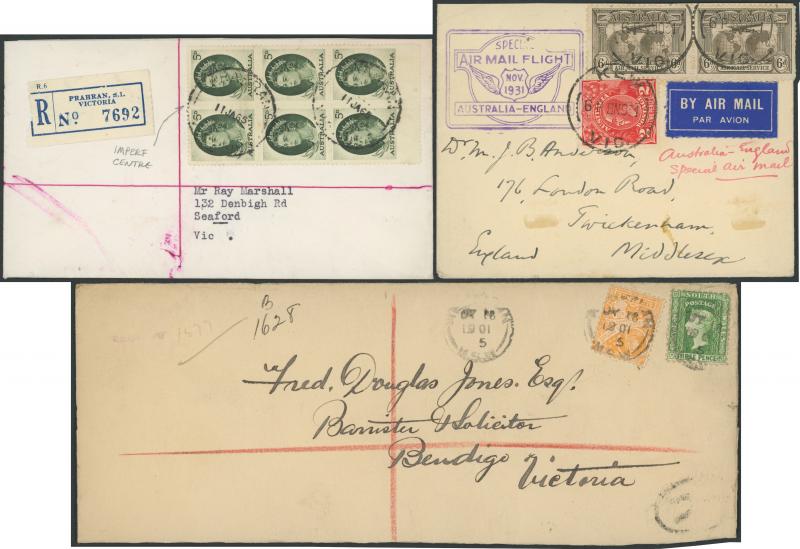 R.6
PRAHRAN, S.1.
VICTORIA
R No 7692
IMPERF
CENTRE
5D AUSTRALIA
11JA65
Mr Ray Marshall
132 Denbigh Rd
Seaford
Vic .
SPECIAL
AIR MAIL FLIGHT
NOV.
1931
AUSTRALIA-ENGLAND
AUSTRALIA
6D AIR MAIL SERVICE
AUSTRALIA
6D AIR MAIL SERVICE
KEW
VIC
BY AIR MAIL
PAR AVION
Australia-England
Special Air mail
Dr M. J. B. Anderson,
176, London Road,
Twickenham,
England Middlesex
B
1628
1577
SOUTH
POSTAGE
THREE PENCE
19 01
5
N.S.W
19 01
5
N.S.W
Fred. Douglas Jones. Esq.
Barrister & Solicitor
Bendigo
Victoria